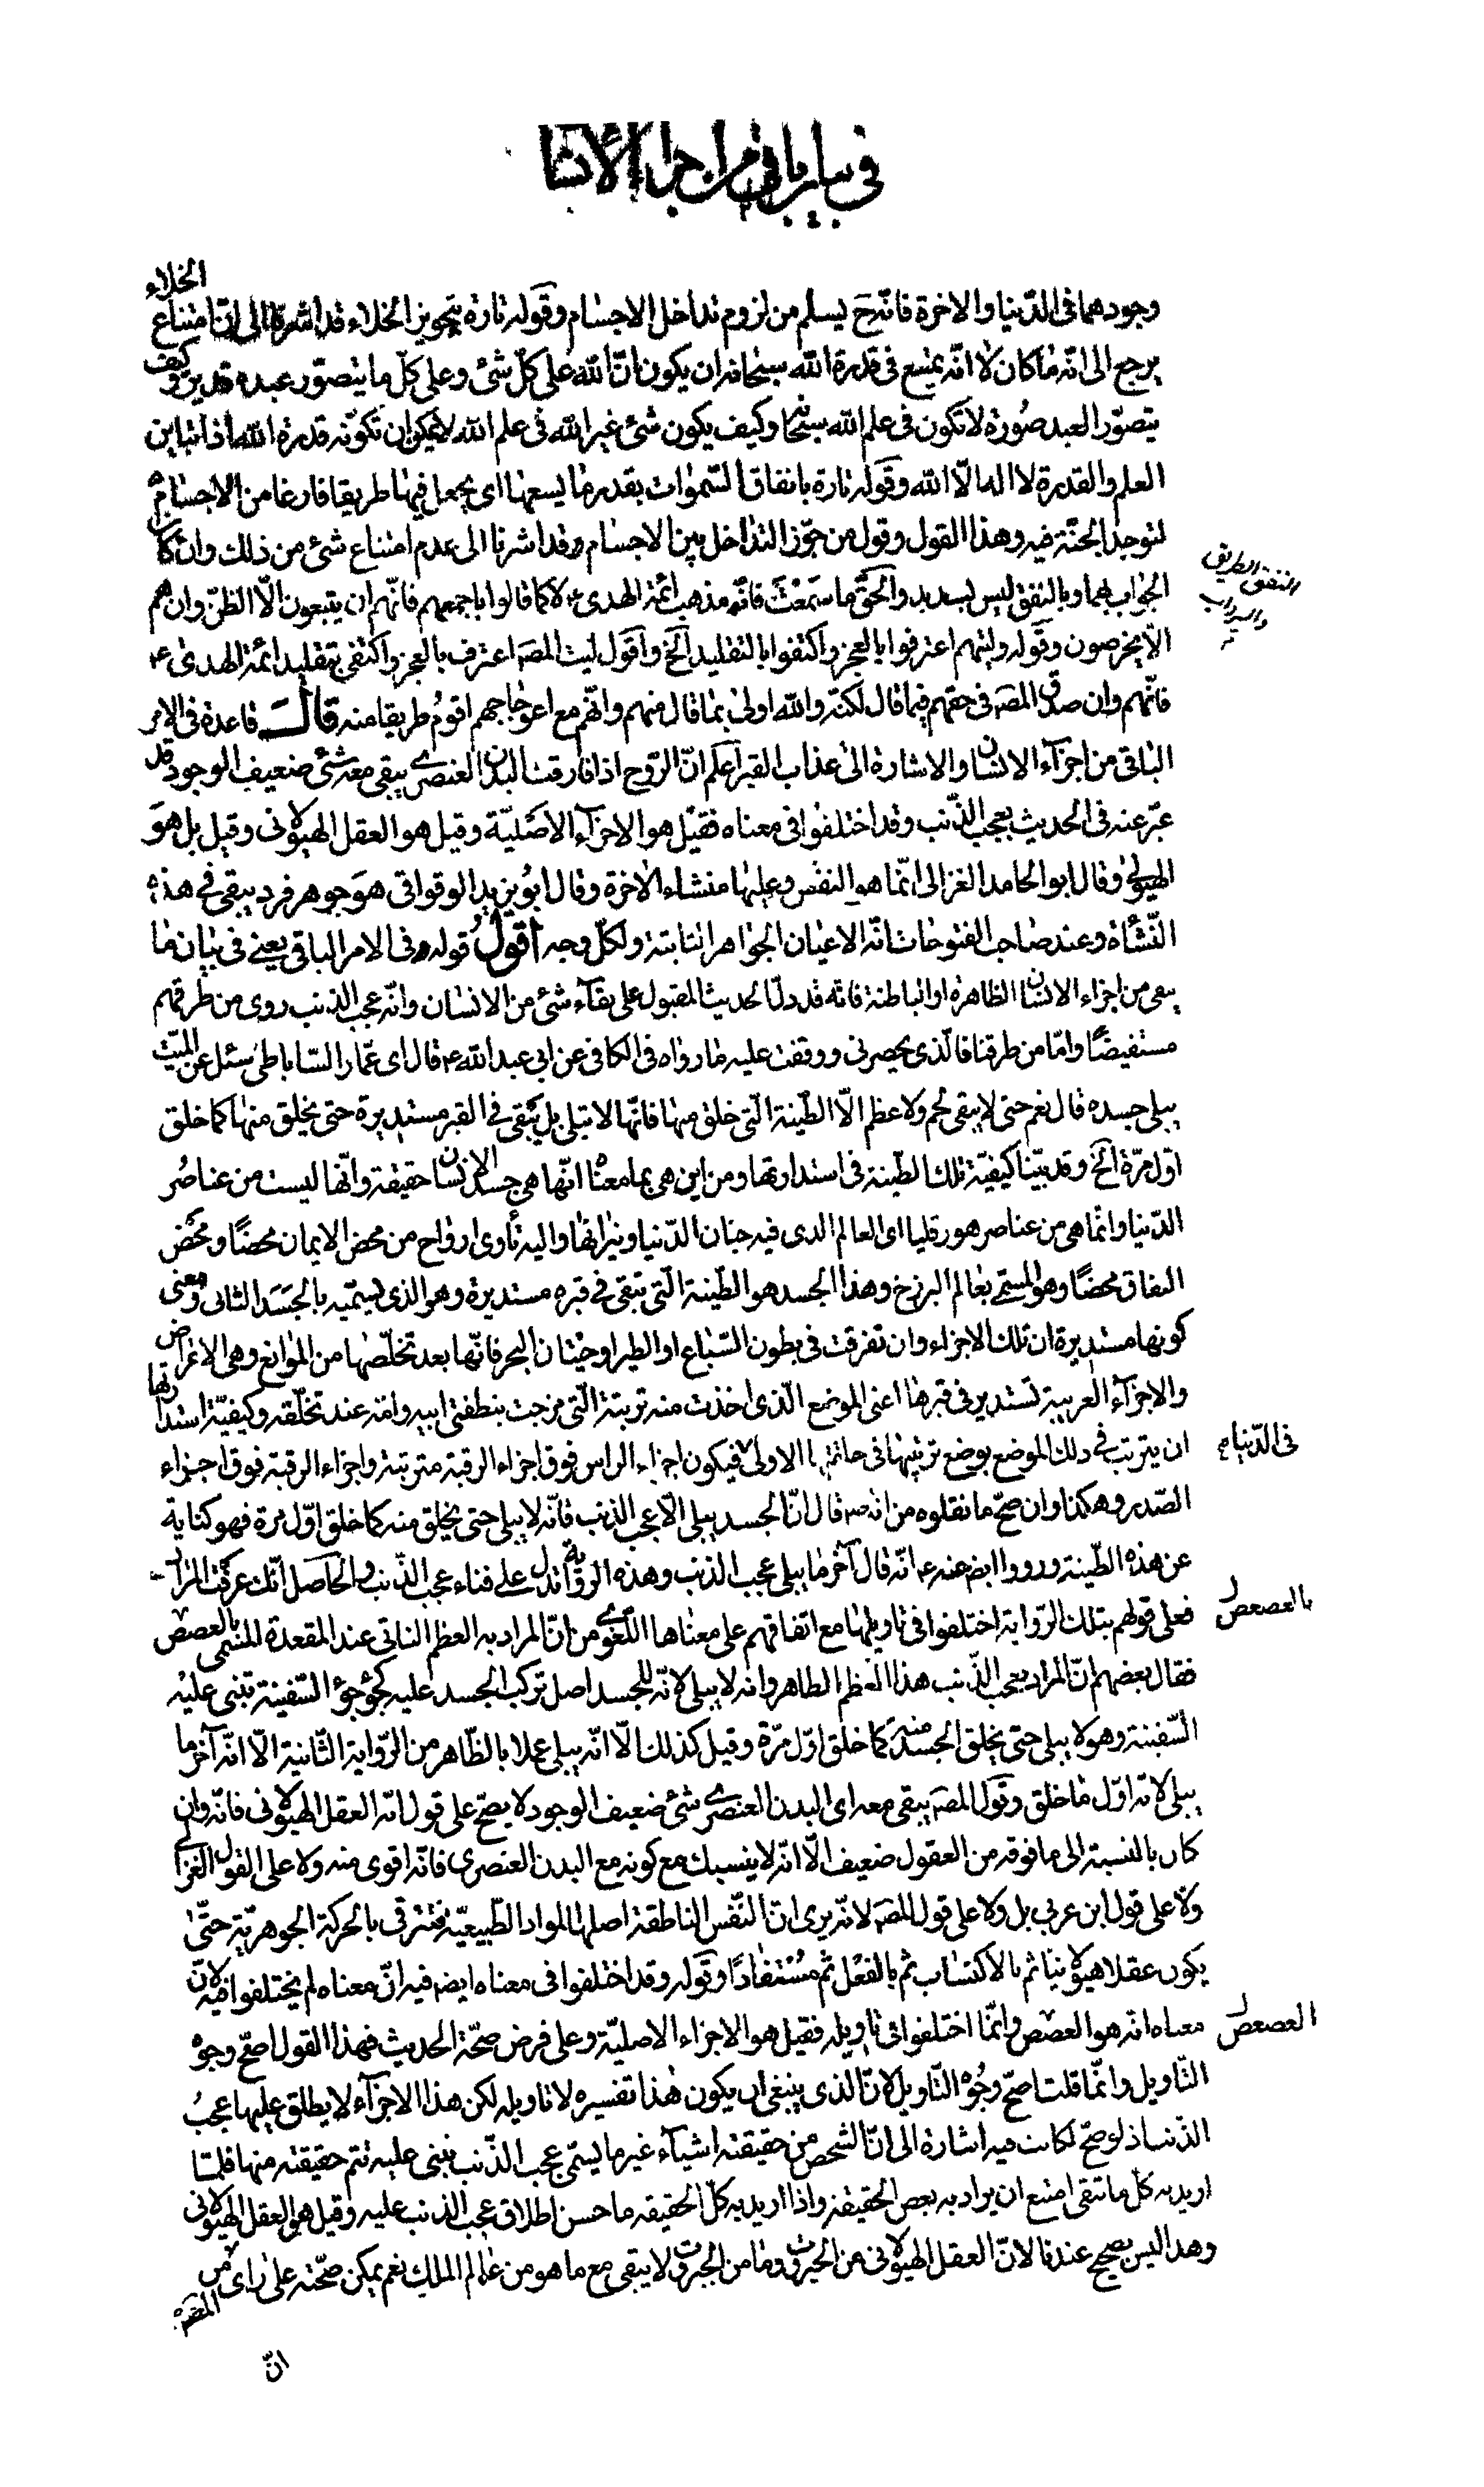 في بيان باقي من اجزاء الأنسان
الخلاء
وجودهما فى الدّنيا والاخرة فانّه ح يسلم من لزوم تداخل الاجسام وقوله تارة بتجويز الخلاء قد اشرنا الى انّ امتناع
يرجع الى انّه ما كان لا انّه يمتنع فى قدرة الله سبحانه ان يكون انّ الله على كلّ شئ وعلى كلّ ما يتصوّر عبده قدير وكيف
يتصوّر العبد صُورة لا تكون فى علم الله سبحانه وكيف يكون شئ غير الله فى علم الله لا يمكن ان تكوّنه قدرة الله اذا تباين
العلم والقدرة لا اله الّا الله وقوله تارة بانفاق السّموات بقدر ما يسعها اى يجعل فيها طريقا فارغا من الاجسام
لتوجد الجنّة فيه وهذا القول وقول من جوّز التداخل بين الاجسام وقد اشرنا الى عدم امتناع شئ من ذلك وان كان
الجواب بهما وبالنفق ليس بسديد والحقّ ما سَمعْتَ فانّه مذهب ائمّة الهدى ع لا كما قالوا باجمعهم فانّهم ان يتبعون الّا الظنّ وان هم
النفق الطريق
والسرداب
الّا يخرصون وقوله وليتهم اعترفوا بالعجز واكتفوا بالتقليد الخ واقول ليت المصه اعترف بالعجز واكتفى بتقليد ائمّة الهدى ع
فانّهم وان صدق المصه فى حقهم فيما قال لكنّه والله اولى بما قال منهم وانّهم مع اعوجاجهم اقومُ طريقا منه قال قاعدة فى الامر
الباقى من اجزآء الانسان والاشارة الى عذاب القبر اعلم انّ الرّوح اذا فارقت البدن العنصرى يبقى معه شئ ضعيف الوجود قد
عبّر عنه فى الحديث بعجب الذّنب وقد اختلفوا فى معناه فقيل هو الاجزآء الاصَليّة وقيل هو العقل الهيولانى وقيل بل هو
الهيولى وقال ابو الحامد الغزالى انّما هو النفس وعليها منشاء الاخرة وقال ابو يزيد الوقواقى هوَ جوهر فرد يبقى فى هذه
النّشأة وعند صاحب الفتوحات انّه الاعيان الجواهر الثابتة ولكلّ وجه أقولُ قوله فى الامر الباقى يعنى فى بيان ما
يبقى من اجزاء الانسان الظاهرة او الباطنة فانّه قد دلّ الحديث المقبول على بقآء شئ من الانسان وانّه عجب الذنب روى من طرقهم
مستفيضًا وامّا من طرقنا فالّذى يحضرنى ووقفت عليه ما رواه فى الكافى عن ابى عبد الله ع قال اى عمّار السّاباطى سُئل عن الميّت
يبلى جسده قال نعم حتى لا يبقى لحم ولا عظم الّا الطّينة الّتى خلق منها فانّها لا تبلى بل تبقى فى القبر مستديرة حتى يخلق منها كما خلق
اوّل مرّة الخ وقد بيّنا كيفيّة تلك الطّينة فى استدارتها ومن اين هى بما معناه انّها هى جسد الانسان حقيقة وانّها ليست من عناصُر
الدّنيا وانّما هى من عناصر هورقليا اى العالم الذى فيه جنان الدّنيا ونيرانها واليه تأوى ارواح من محض الايمان محضًا ومحَض
النفاق محضًا وهو المسمّى بعالم البرزخ وهذا الجسد هو الطّينة الّتى تبقى فى قبره مستديرة وهو الذى نسمّيه بالجَسَد الثانى ومعنى
كونها مستديرة ان تلك الاجزاء وان تفرقت فى بطون السّباع او الطير او حيتان البحر فانّها بعد تخلّصها من الموانع وهى الاعراض
والاجزآء الغريبة تستدير فى قبرها اعنى الموضع الّذى اخذت منه تربته الّتى مزجت بنطفتى ابيه وامّه عند تخلّقه وكيفيّة استدارتها
ان يترتب فى ذلك الموضع بوضع ترتيبها فى حالتها الاولى فيكون اجزاء الراس فوق اجزاء الرقبة مترتبة واجزاء الرقبة فوق اجزاء
فى الدّنيا
الصّدر وهكذا وان صحّ ما نقلوه من انه ص قال انّ الجسد يبلى الّا عجب الذنب فانّه لا يبلى حتى يخلق منه كما خلق اوّل مرة فهو كناية
عن هذه الطّينة ورووا ايضا عنه ع انّه قال آخر ما يبلى عجب الذنب وهذه الرواية تدل على فناء عجب الذّنب والحاصل انّك عرفت المراد
فعلى قولهم بتلك الرّواية اختلفوا فى تاويلها مع اتفاقهم على معناها اللّغوى من انّ المراد به العظم الناتى عند المقعدة المسمّى بالعصص
بالعصعص ل
فقال بعضهم انّ المراد بعجب الذّنب هذا العظم الظاهر وانه لا يبلى لانّه للجسد اصل تركب الجسد عليه كجؤجؤ السّفينة تبنى عليه
السّفينة وهو لا يبلى حتى يخلق الجسد منه كما خلق اوّل مرّة وقيل كذلك الّا انّه يبلى عملا بالظّاهر من الرّواية الثّانية الّا انّه آخر ما
يبلى لانّه اوّل ما خلق وقول المصه يبقى معه اى البدن العنصرى شئ ضعيف الوجود لا يصحّ على قول انّه العقل الهيولانى فانّه وان
كان بالنسبة الى ما فوقه من العقول ضعيف الّا انّه لا ينسبك مع كونه مع البدن العنصرى فانّه اقوى منه ولا على القول الغزالى
ولا على قول ابن عربى بل ولا على قول المصه لانّه يرى انّ النّفس الناطقة اصلها المواد الطّبيعيّة فتترقى بالحركة الجوهريّة حتّى
يكون عقلا هيولانيّا ثم بالاكتساب ثم بالفعْل ثم مُسْتفادًا وقوله وقد اختلفوا فى معناه ايضا فيه انّ معناه لم يختلفوا فيه لانّ
معناه انه هو العصص وانّما اختلفوا فى تاويله فقيل هو الاجزاء الاصليّة وعلى فرض صحّة الحديث فهذا القول اصحّ وجوه
العصعص ل
التّاويل وانّما قلت اصحّ وجُوه التّاويل لانّ الذى ينبغى ان يكون هذا تفسيره لا تاويله لكن هذا الاجزآء لا يطلق عليها عجبُ
الذّنب اذ لو صحّ لكانت فيه اشارة الى انّ الشخص من حقيقته اشيآء غير ما يسمّى عجب الذّنب تبنى عليه تتم حقيقته منها فلمّا
اريد به كلّ ما تبقى امتنع ان يراد به بعض الحقيقة واذا اريد به كلّ الحقيقه ما حسن اطلاق عجب الذنب عليه وقيل هو العقل الهيولانى
وهذا ليس بصحيح عندنا لانّ العقل الهيولانى من الجبروت وما من الجبروت لا يبقى مع ما هو من عالم الملك نعم يمكن صحّته على راى
المصه
انّ